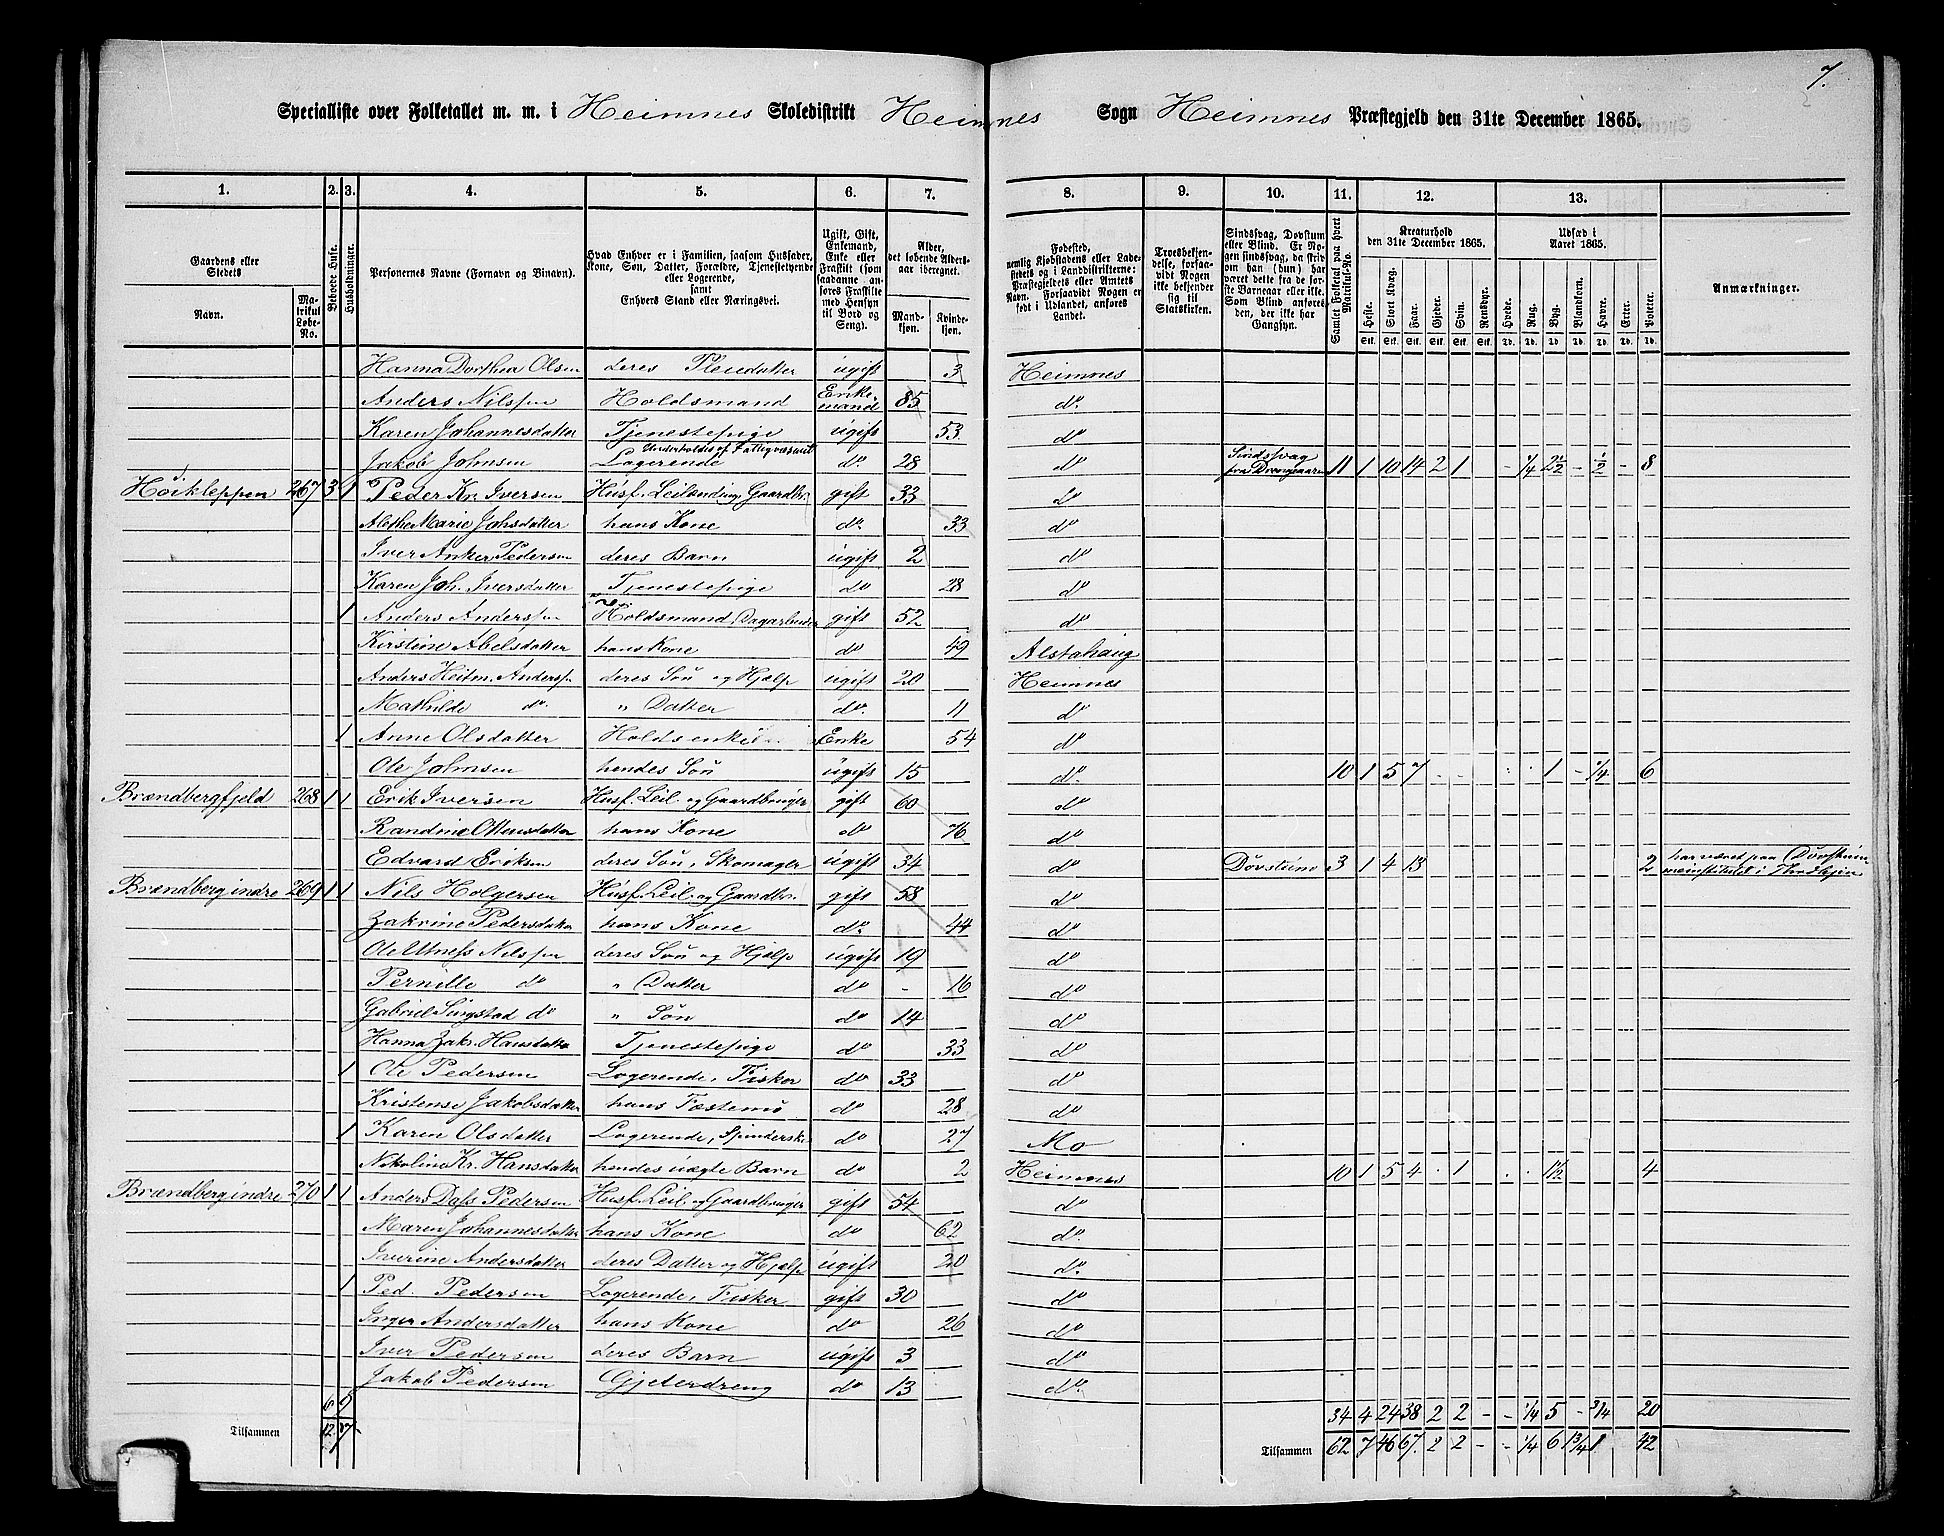 7.
Specialliste over Folketallet m. m. i Heimnes Skoledistrikt Heimnes Sogn Heimnes Præstegjeld den 31te December 1865.
1. 2. 3. 4. 5. 6. 7. 8. 9. 10. 11. 12. 13.
Gaardens eller Stedets
Navn.
Matrikul Løbe-No.
Beboede Huse.
Husholdninger.
Personernes Navne (Fornavn og Binavn).
Hvad Enhver er i Familien, saasom Husfader, Kone, Søn, Datter, Forældre, Tjenestetyende eller Logerende, samt Enhvers Stand eller Næringsvei.
Ugift, Gift, Enkemand, Enke eller Fraskilt (som saadanne anføres Fraskilte med Hensyn til Bord og Seng).
Alder, det løbende Aldersaar iberegnet.
Mandkjøn. Kvindekjøn.
Fødested, nemlig Kjøbstadens eller Ladestedets og i Landdistrikterne: Præstegjeldets eller Amtets Navn. Forsaavidt Nogen er født i Udlandet, anføres Landet.
Troesbekjendelse, forsaavidt Nogen ikke bekjender sig til Statskirken.
Sindssvag, Døvstum eller Blind. Er Nogen sindssvag, da skrives om han (hun) har været det fra de første Barneaar eller ikke. Som Blind anføres den, der ikke har Gangsyn.
Samlet Folketal paa hvert Matrikul-No.
Kreaturhold den 31te December 1865.
Heste. Stort Kvæg. Faar. Gjeder. Svin. Rensdyr.
Stk. Stk. Stk. Stk. Stk. Stk.
Udsæd i Aaret 1865.
Hvede. Rug. Byg. Blandkorn. Havre. Erter. Poteter.
Td. Td. Td. Td. Td. Td. Td.
Anmærkninger.
Hanna Dorthea Olsen deres Pleiedatter ugift 3 Heimnes
Anders Nilssen Holdsmand Enkemand 85 do.
Karen Johannesdatter Tjenestepige ugift 53 do
Jakob Johnsen Logerende Underholdes af Fattigvæsenet do. 28 do Sindssvag fra 11 1 10 14 2 1 - 1/4 2 1/2 - 1/2 - 8
Høikleppen 267 3 1 Peder Kr. Iversen Husf. Leilending Gaardbr. gift 33 do
Alethe Marie Johsdatter hans Kone do. 33 do
Iver Anker Pedersen deres Barn ugift 2 do
Karen Joh. Iversdatter Tjenestepige do 28 do
1 Anders Anderssen Holdsmand, Dagarbeider gift 52 do
Kirstine Abelsdatter hans Kone do 49 Alstahaug
Anders Heitm. Anderss. deres Søn og Hjælp ugift 20 Heimnes
Mathilde do. " Datter do. 11 do
1 Anne Olsdatter Enke 54 do
Ole Johnsen hendes Søn ugift 15 do. 10 1 5 7 - - 1 - 1/4 6
Brændbergfjeld 268 1 1 Erik Iversen Husf. Leil. og Gaardbruger gift 60 do
Randine Ottensdatter hans Kone do 76 do
Edvard Eriksen deres Søn, Skomager ugift 34 do Døvstum 3 1 4 13 2 har været paa Døvstummeinstitutet i
Brændberg indre 269 1 1 Nils Holgersen Husf. Leil. og Gaardbr. gift 58 do
Zakrine Pedersdatter hans Kone do. 44 do
Ole Utness Nilssen deres Søn og Hjælp ugift 19 do
Pernille do " Datter do - 16 do
Gabriel Singstad do " Søn do 14 do
Hanna Zakr. Hansdatter Tjenestepige do 33 do
1 Ole Pedersen Logerende, Fisker do 33 do
Kristense Jakobsdatter hans Fæstemø do 28 do
1 Karen Olsdatter Logerende, Spinderske do 27 Mo
Nikoline Kr. Hansdatter hendes uægte Barn do 2 Heimnes 10 1 5 4 - 1 - - 1 1/2 4
Brændberg indre 270 1 1 Anders Dass Pedersen Husf. Leil. og Gaardbruger gift 54 do
Maren Johannesdatter hans Kone do 62 do.
Iverine Andersdatter deres Datter og Hjælp ugift 20 do.
1 Ped. Pedersen Logerende, Fisker gift 30 do
Inger Andersdatter hans Kone do 26 do
Iver Pedersen deres Barn ugift 3 do
Jakob Pedersen Gjeterdreng do 13 do.
6 9 34 4 24 38 2 2 - - 1/4 5 - 3/4 20
Tilsammen 12 17 Tilsammen 62 7 46 67 2 2 - - 1/4 6 1 3/4 1 42